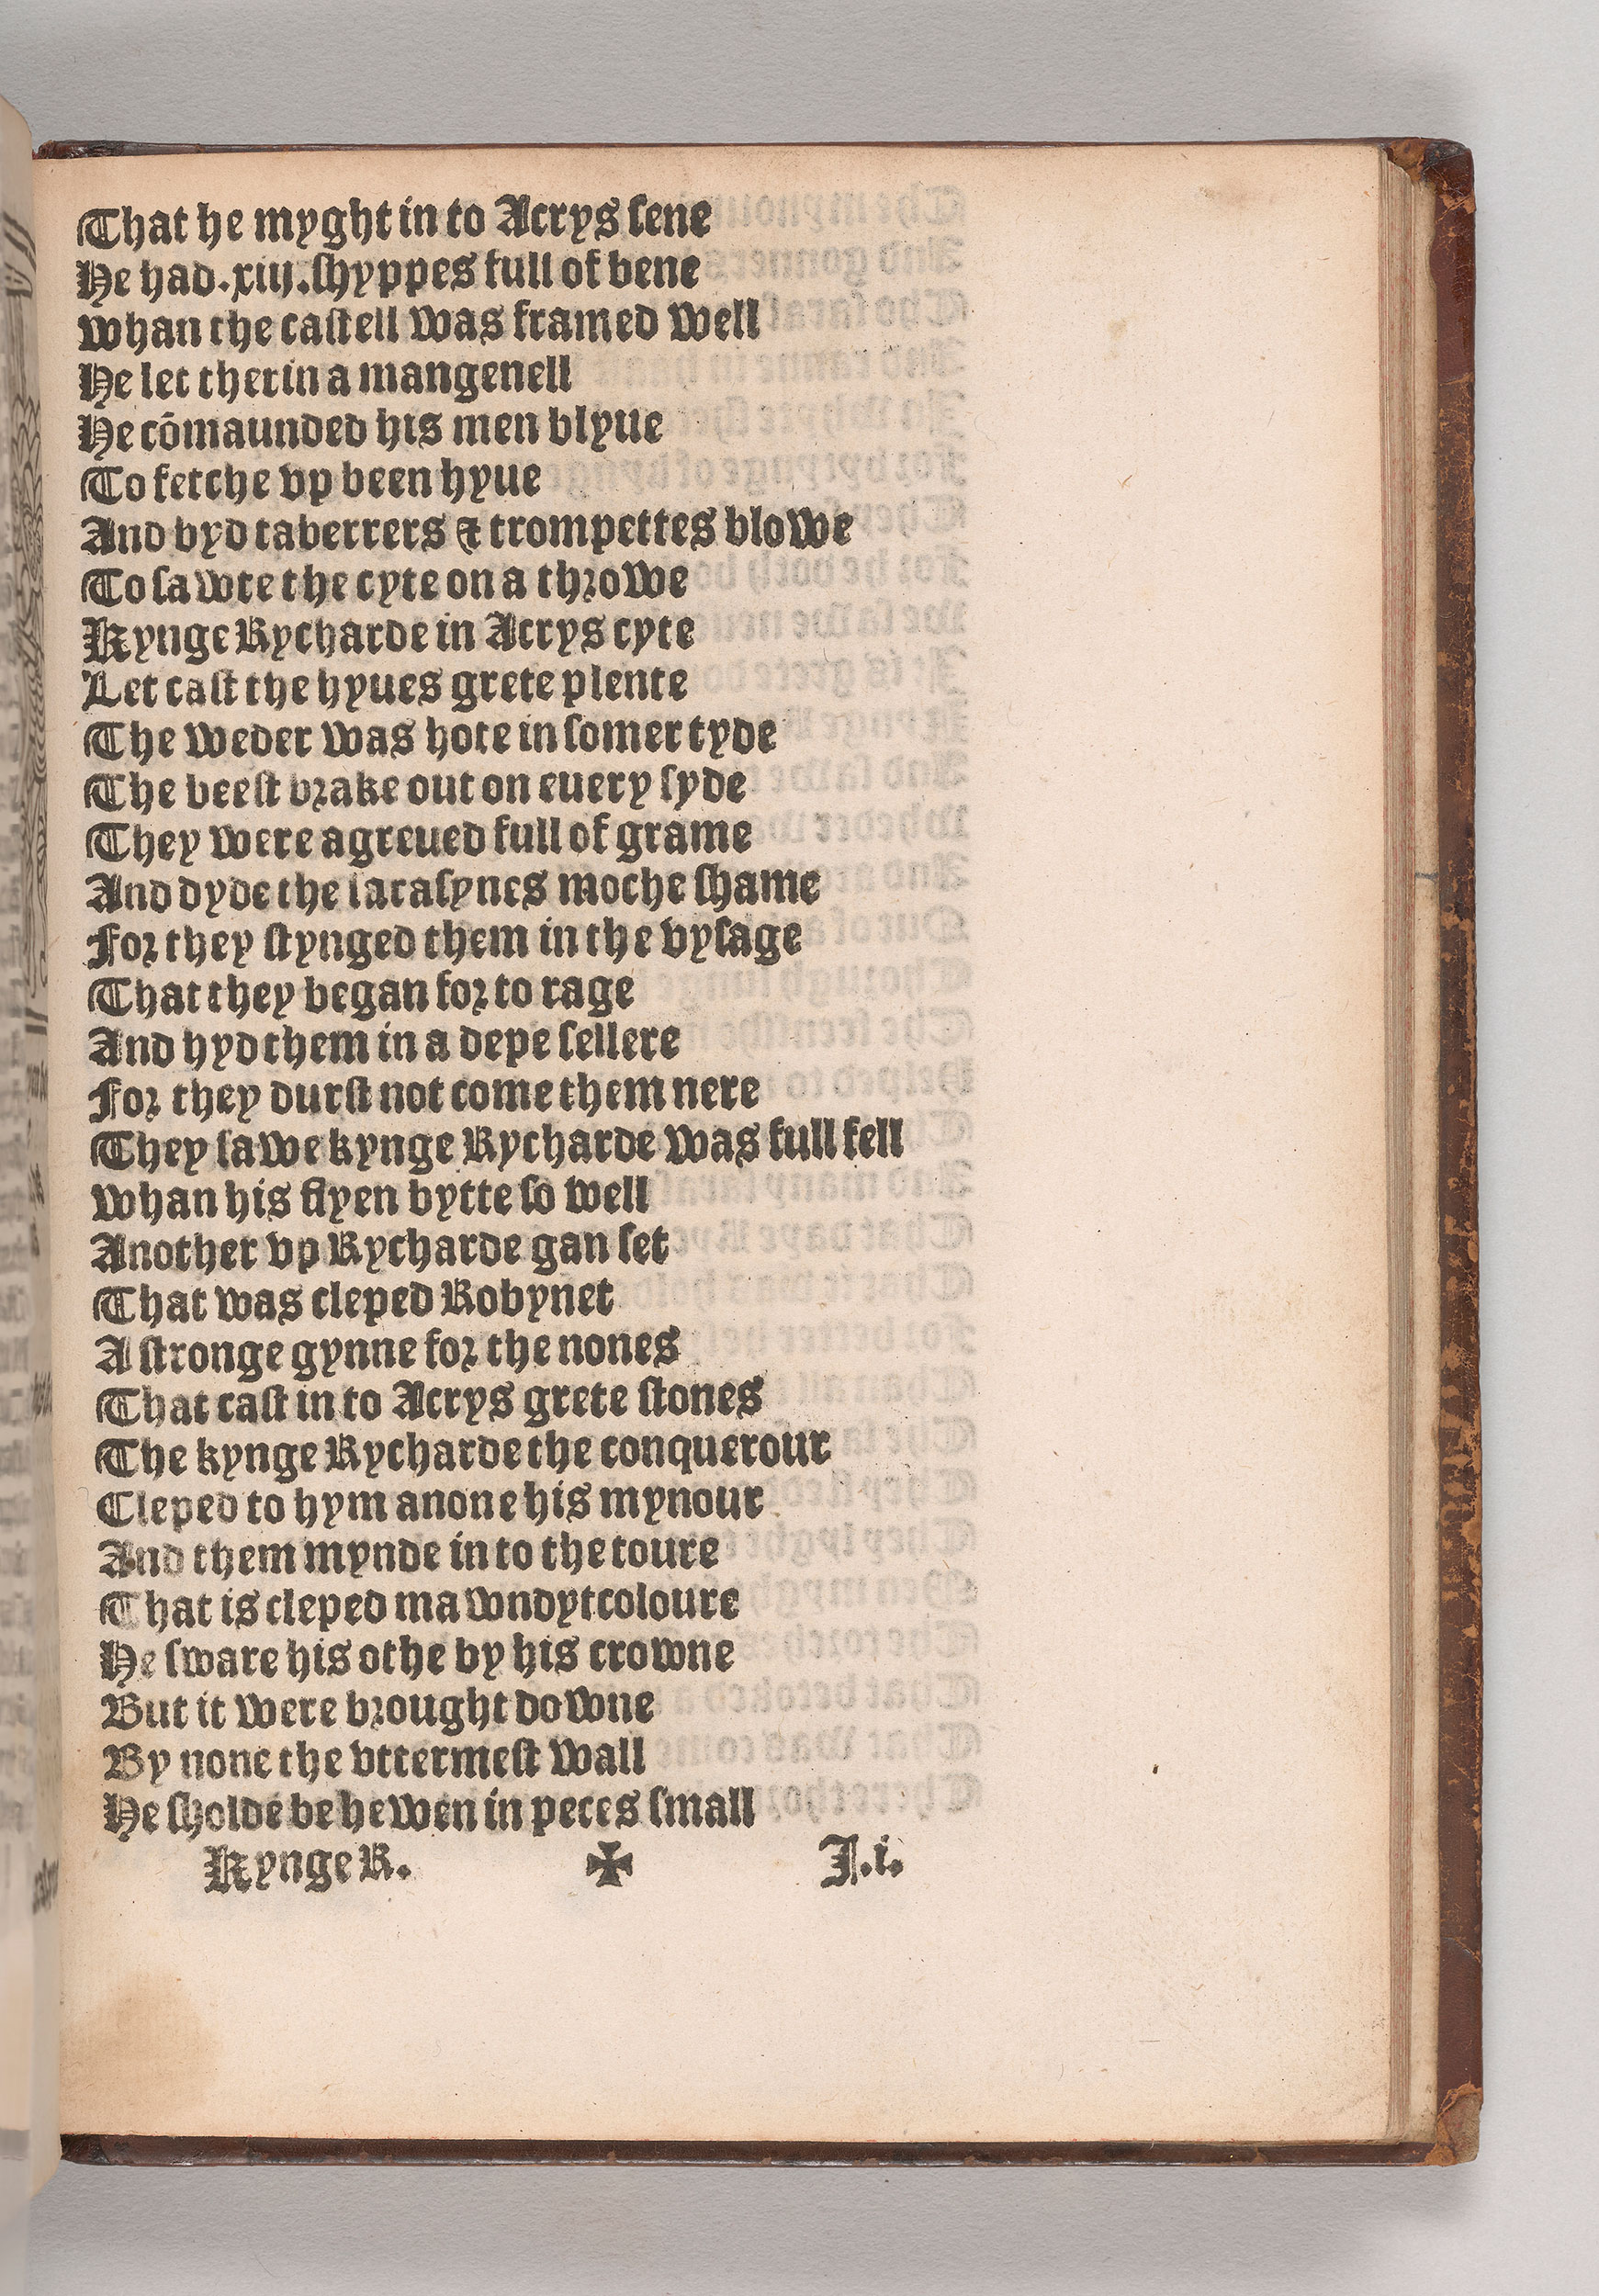 That he myght in to Acrys sene
He had .xiij. shyppes full of bene
whan the castell was framed well
He let therin a mangenell
He cōmaunded his men blyue
To fetche vp been hyue
And byd taberrers & trompettes blowe
To sawte the cyte on a throwe
Kynge Rycharde in Acrys cyte
Let cast the hyues grete plente
The weder was hote in somer tyde
The beest brake out on euery syde
They were agreued full of grame
And dyde the sarasynes moche shame
For they stynged them in the vysage
That they began for to rage
And hyd them in a depe sellere
For they durst not come them nere
They sawe kynge Rycharde was full fell
whan his flyen bytte so well
Another vp Rycharde gan set
That was cleped Robynet
A stronge gynne for the nones
That cast in to Acrys grete stones
The kynge Rycharde the conquerour
Cleped to hym anone his mynour
And them mynde in to the toure
That is cleped mawndytcoloure
He sware his othe by his crowne
But it were brought downe
By none the vttermest wall
He sholde be hewen in peces small
Kynge R. ✠ J.i.